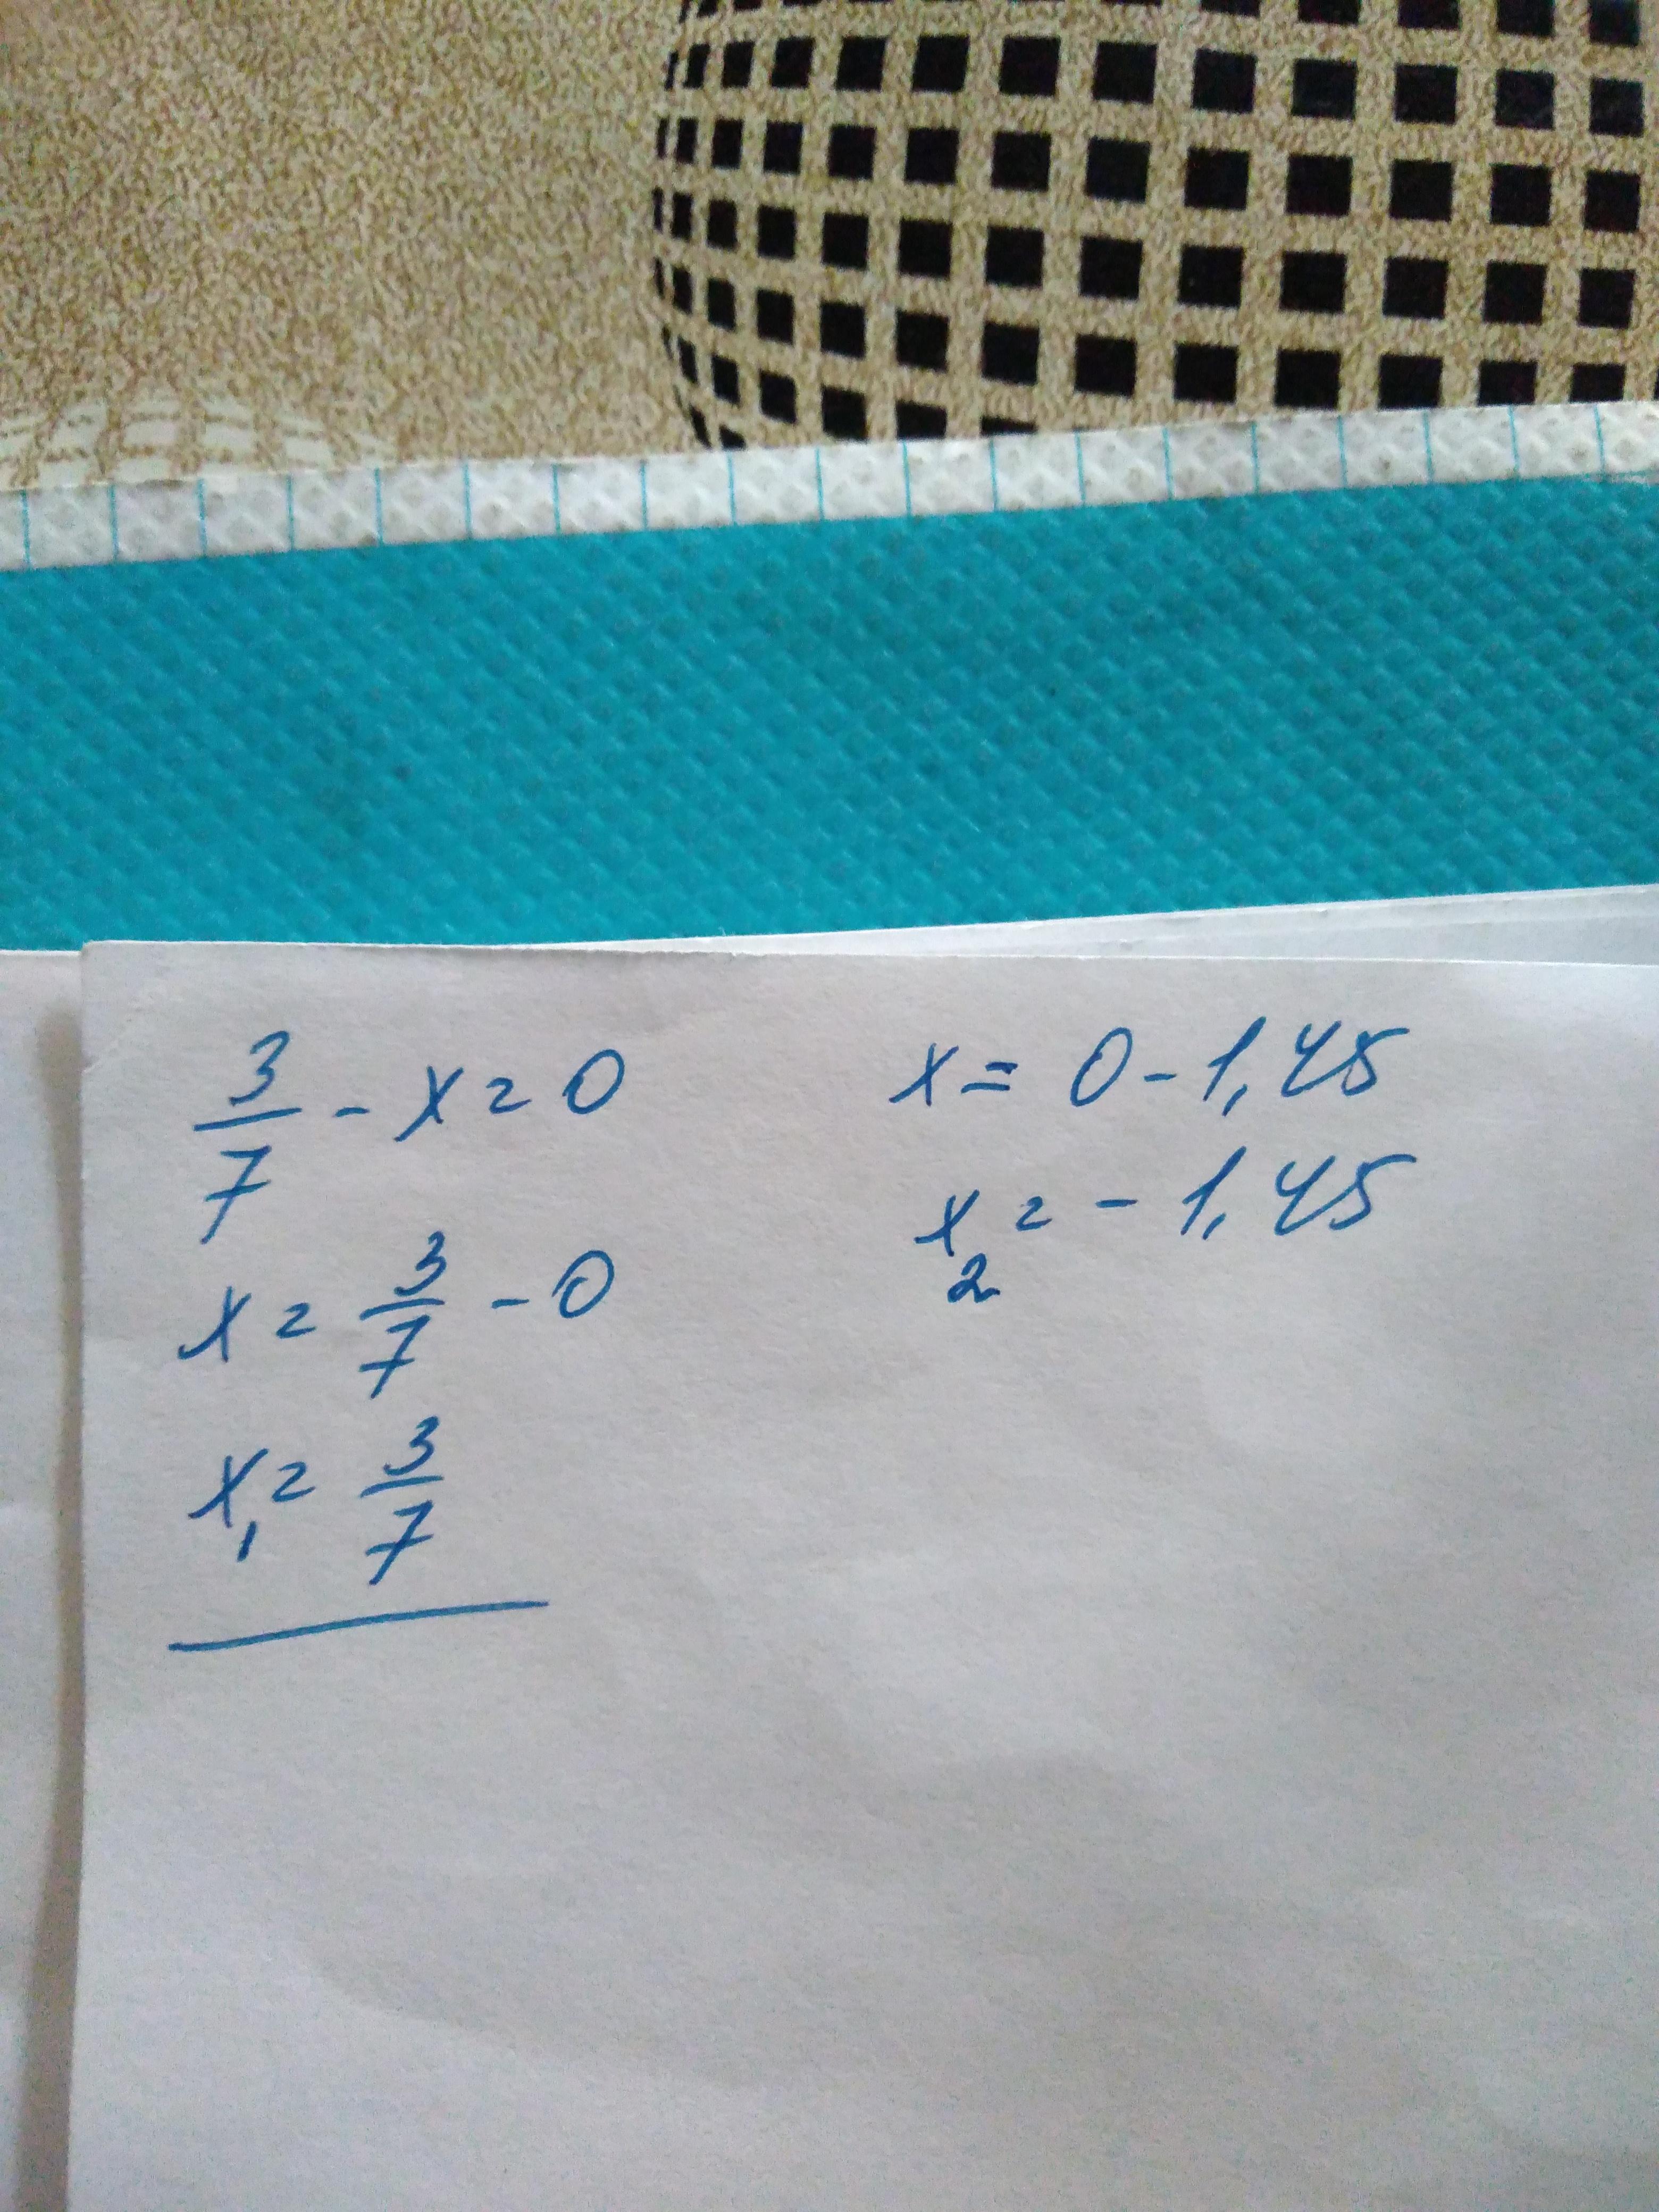 3/7 - x = 0
x = 3/7 - 0
x₁ = 3/7
x = 0 - 1,45
x₂ = - 1,45